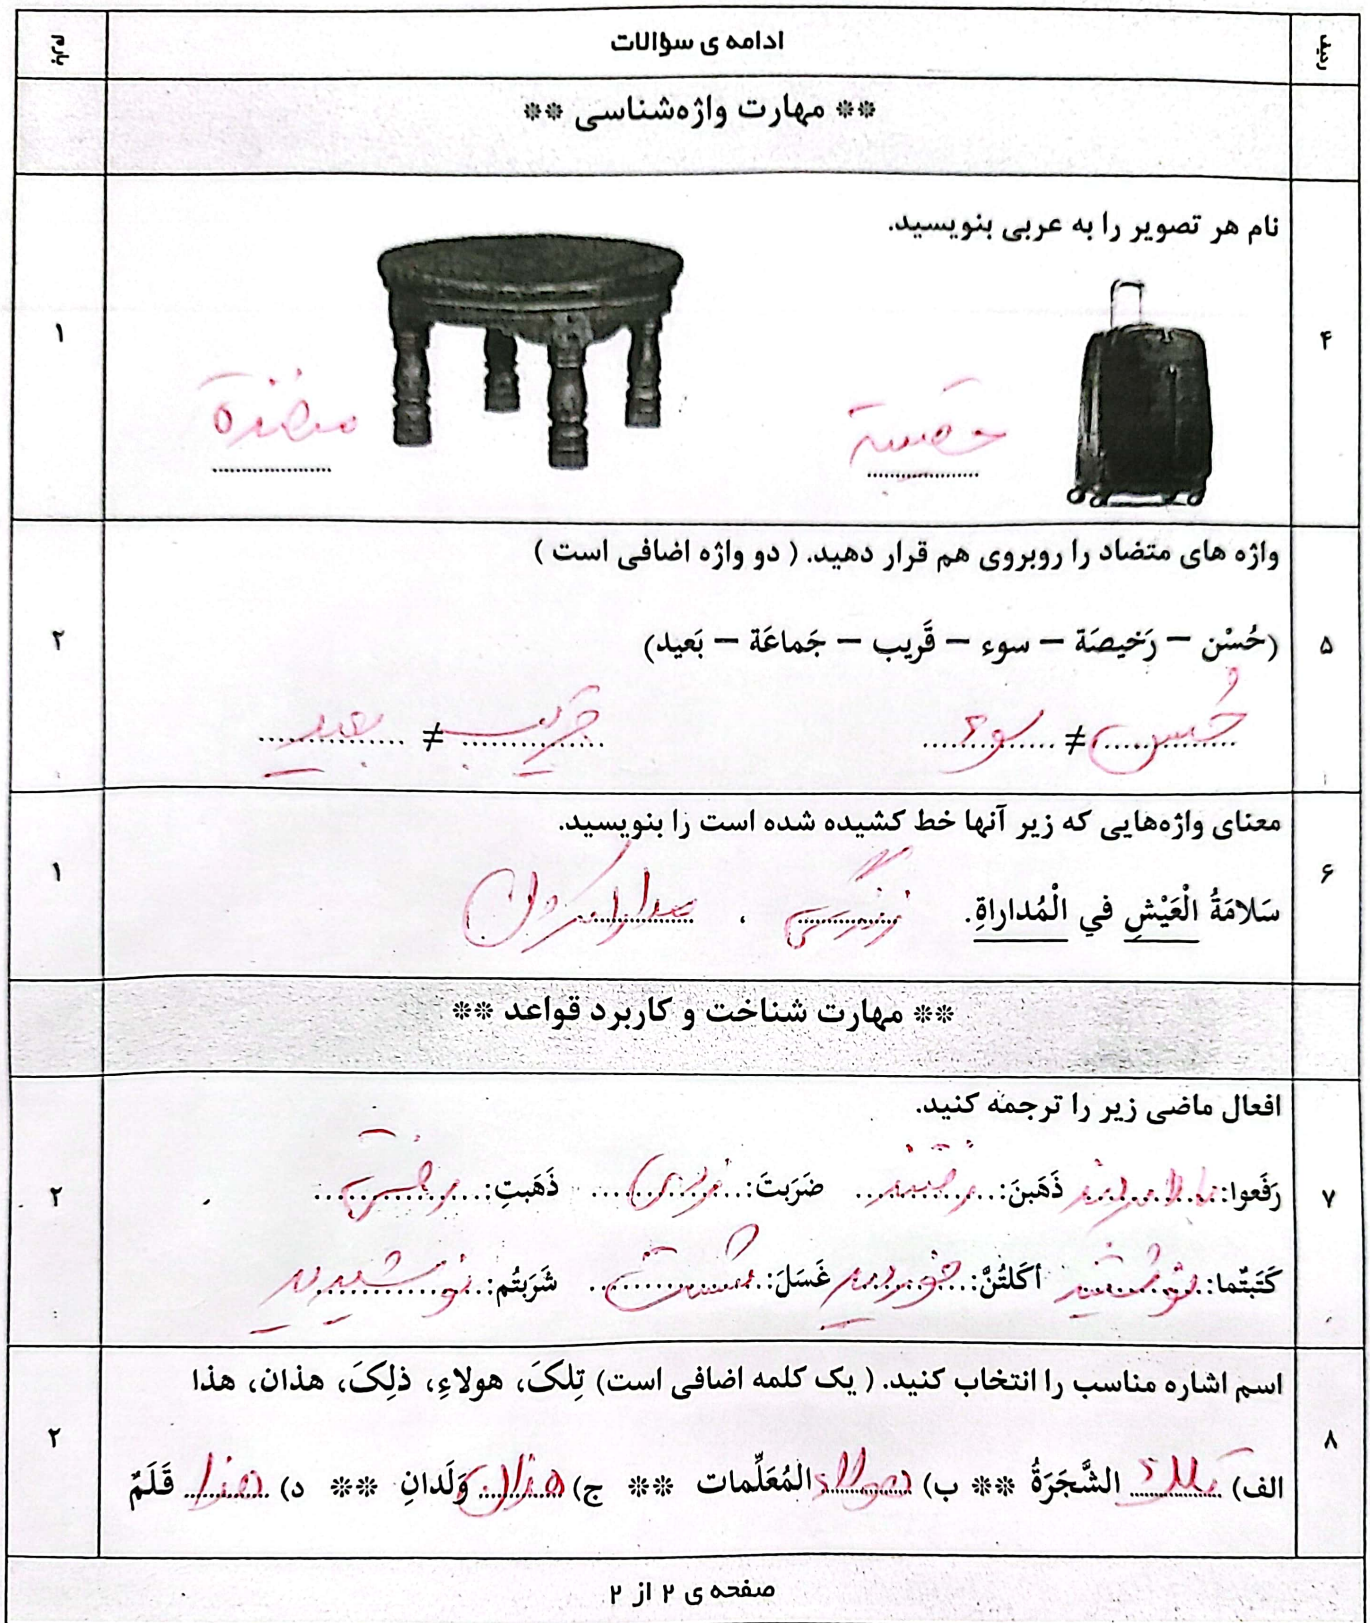 ردیف ادامه ی سؤالات بارم
** مهارت واژه‌شناسی **
۴ نام هر تصویر را به عربی بنویسید. ۱
حقیبة منضدة
واژه های متضاد را روبروی هم قرار دهید. ( دو واژه اضافی است )
۵ (حُسْن – رَخیصَة – سوء – قَریب – جَماعَة – بَعید) ۲
حُسن ≠ سوء قریب ≠ بعید
معنای واژه‌هایی که زیر آنها خط کشیده شده است را بنویسید.
۶ سَلامَةُ الْعَیْشِ في الْمُداراةِ. زندگی ، مدارا کردن ۱
** مهارت شناخت و کاربرد قواعد **
افعال ماضی زیر را ترجمه کنید.
۷ رَفَعوا: بالا بردند ذَهَبنَ: رفتند ضَرَبتَ: زدی ذَهَبتِ: رفتی ۲
کَتَبتُما: نوشتید أکَلتُنَّ: خوردید غَسَلَ: شست شَرَبتُم: نوشیدید
اسم اشاره مناسب را انتخاب کنید. ( یک کلمه اضافی است) تِلکَ، هولاءِ، ذلِکَ، هذان، هذا
۸ الف) تلک الشَّجَرَةُ ** ب) هولاء المُعَلِّمات ** ج) هذان وَلَدانِ ** د) هذا قَلَمٌ ۲
صفحه ی ۲ از ۲